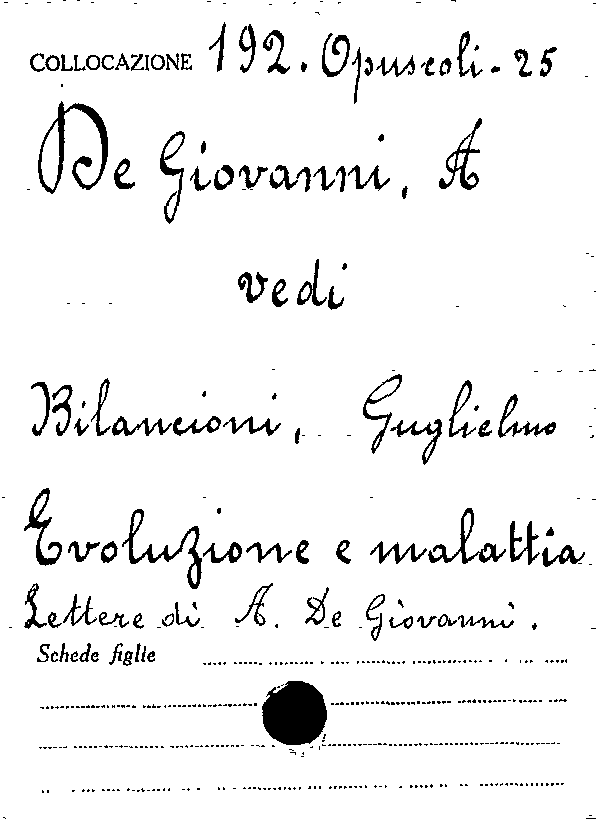 COLLOCAZIONE 192. Opuscoli - 25
De Giovanni, A
vedi
Bilancioni, Guglielmo
Evoluzione e malattia
Lettere di A. De Giovanni.
Schede figlie